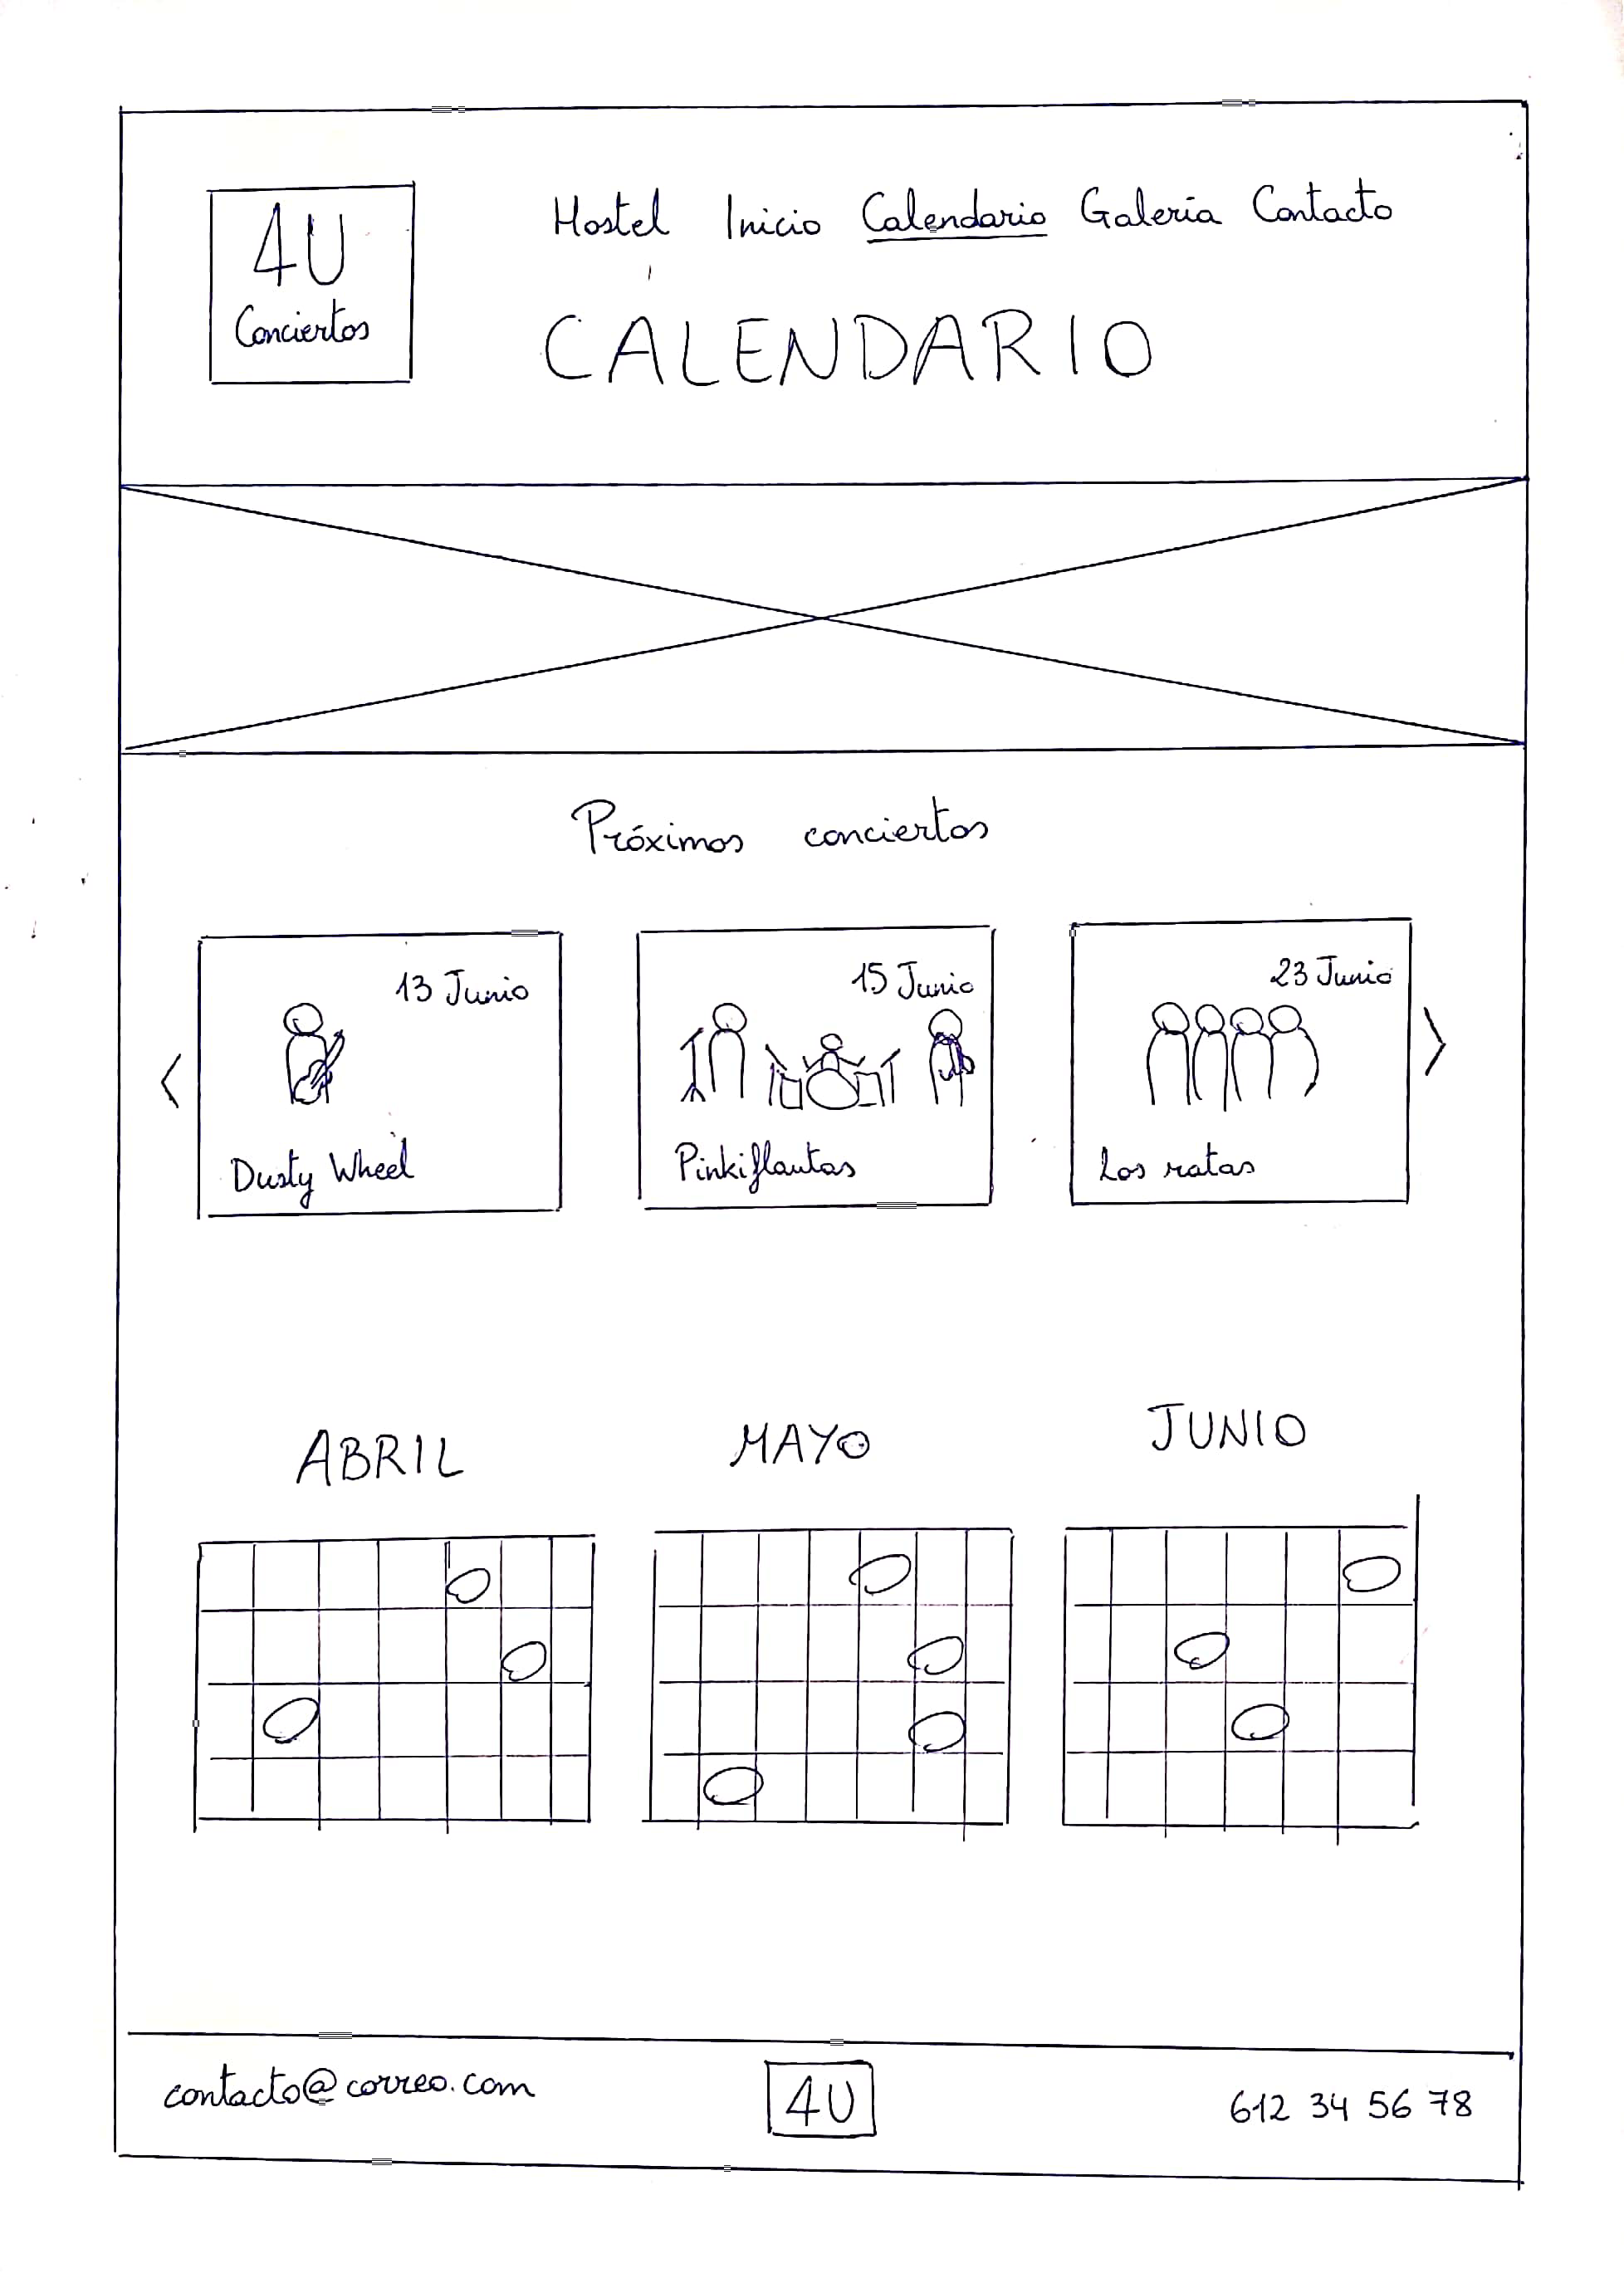 4U
Conciertos
Hostel Inicio Calendario Galería Contacto
CALENDARIO
Próximos conciertos
13 Junio
Dusty Wheel
15 Junio
Pinkiflautas
23 Junio
Los ratas
ABRIL
MAYO
JUNIO
contacto@correo.com
4U
612 34 56 78